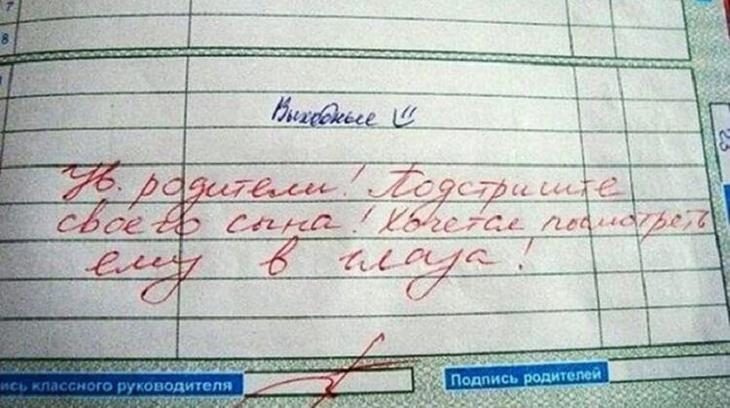 7
8
Выходные
Ув. родители! Подстригите
своего сына! Хочется посмотреть
ему в глаза!
ись классного руководителя
Подпись родителей
23